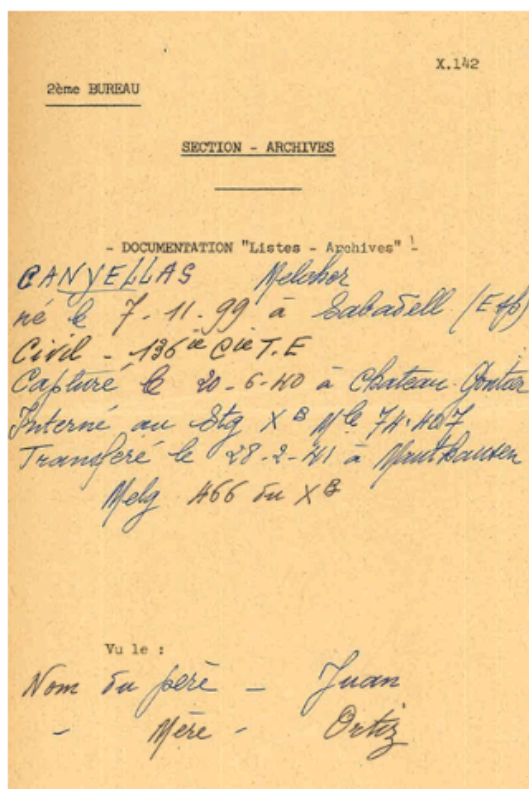 X.142
2ème BUREAU
SECTION - ARCHIVES
- DOCUMENTATION "Listes - Archives" -
CANYELLAS Melchor
né le 7-11-99 à Sabadell (Esp)
Civil - 136ie Cie T.E
Capturé le 20-6-40 à Chateau-Gontier
Interné au Stg X B Mle 74.407
Transféré le 28-2-41 à Mauthausen
Melg 466 du X B
Vu le :
Nom du père - Juan
- Mère - Ortiz